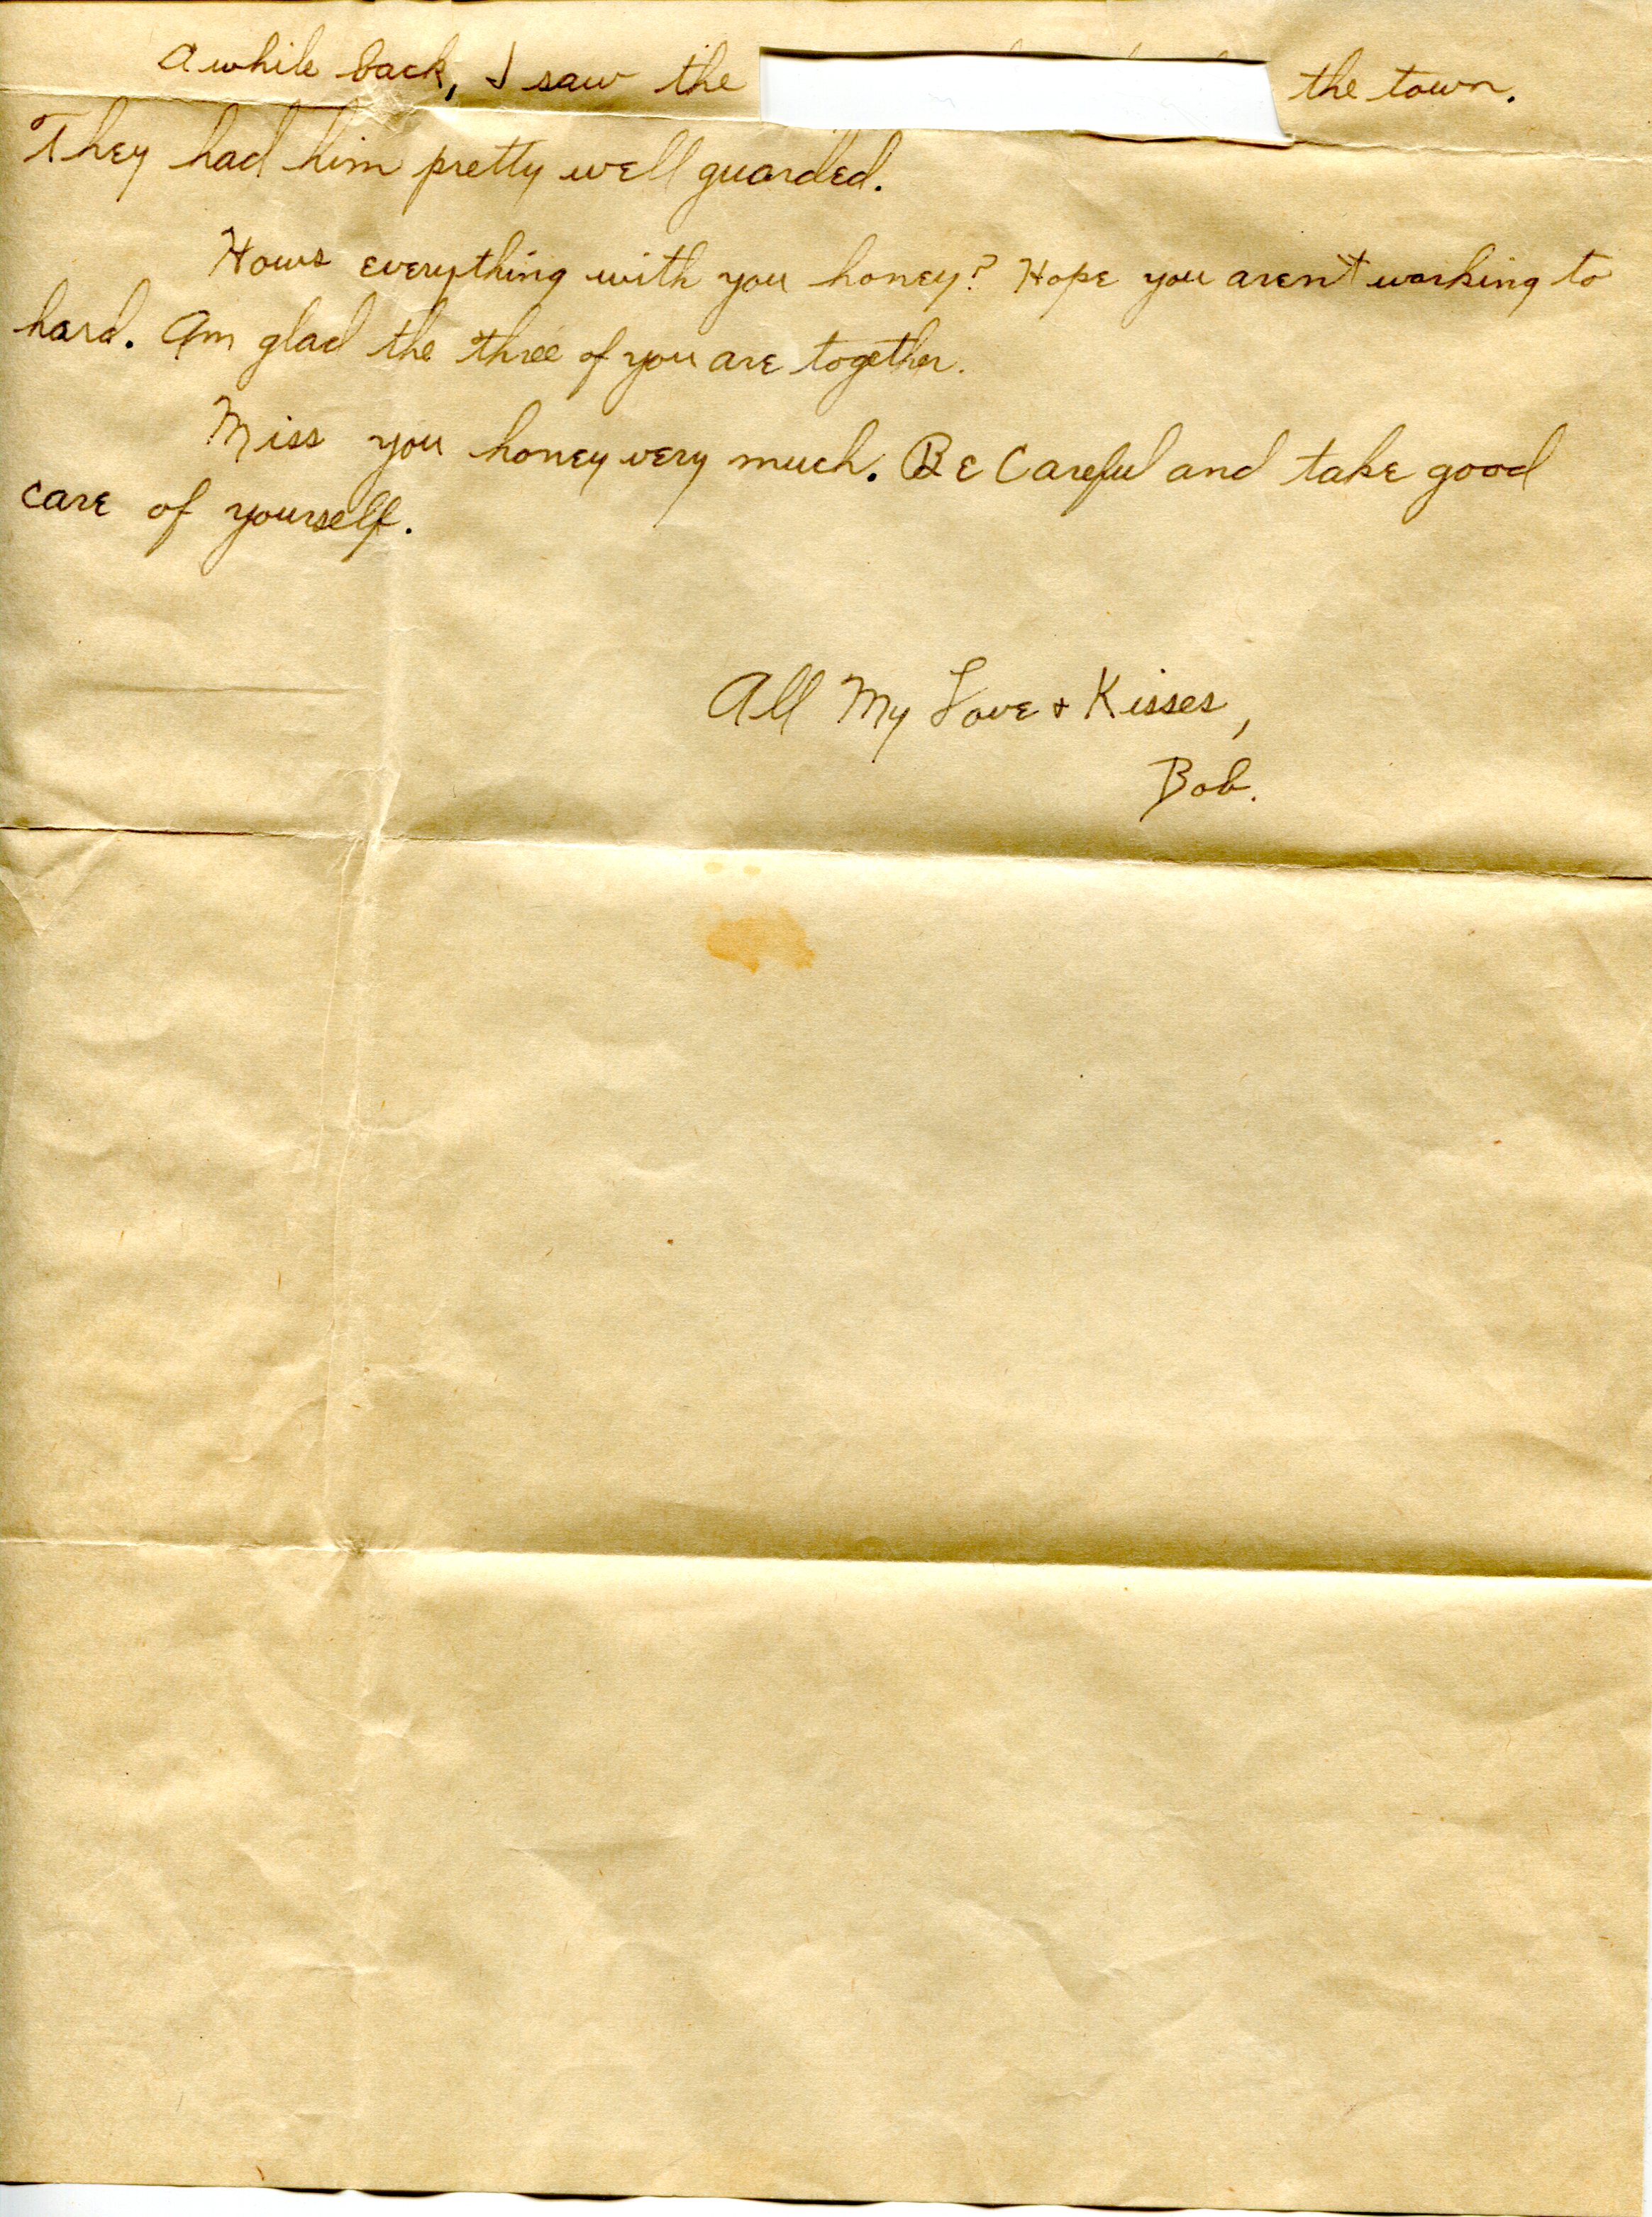 Awhile back, I saw the the town.
They had him pretty well guarded.
Hows everything with you honey? Hope you aren't working to
hard. Am glad the three of you are together.
Miss you honey very much. Be Careful and take good
care of yourself.
All My Love + Kisses,
Bob.